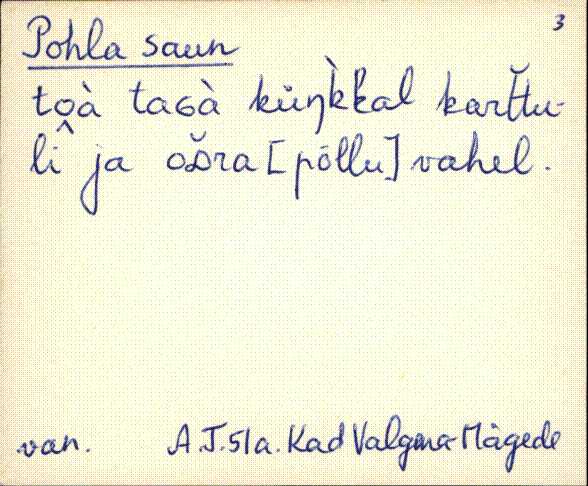 3
Pohla saun
toà tagà küŋk̀kal kart̆tu-
lî ja oz̆ra [põllu] vahel.
van. A.J. 51 a. Kad Valgma-Mägede